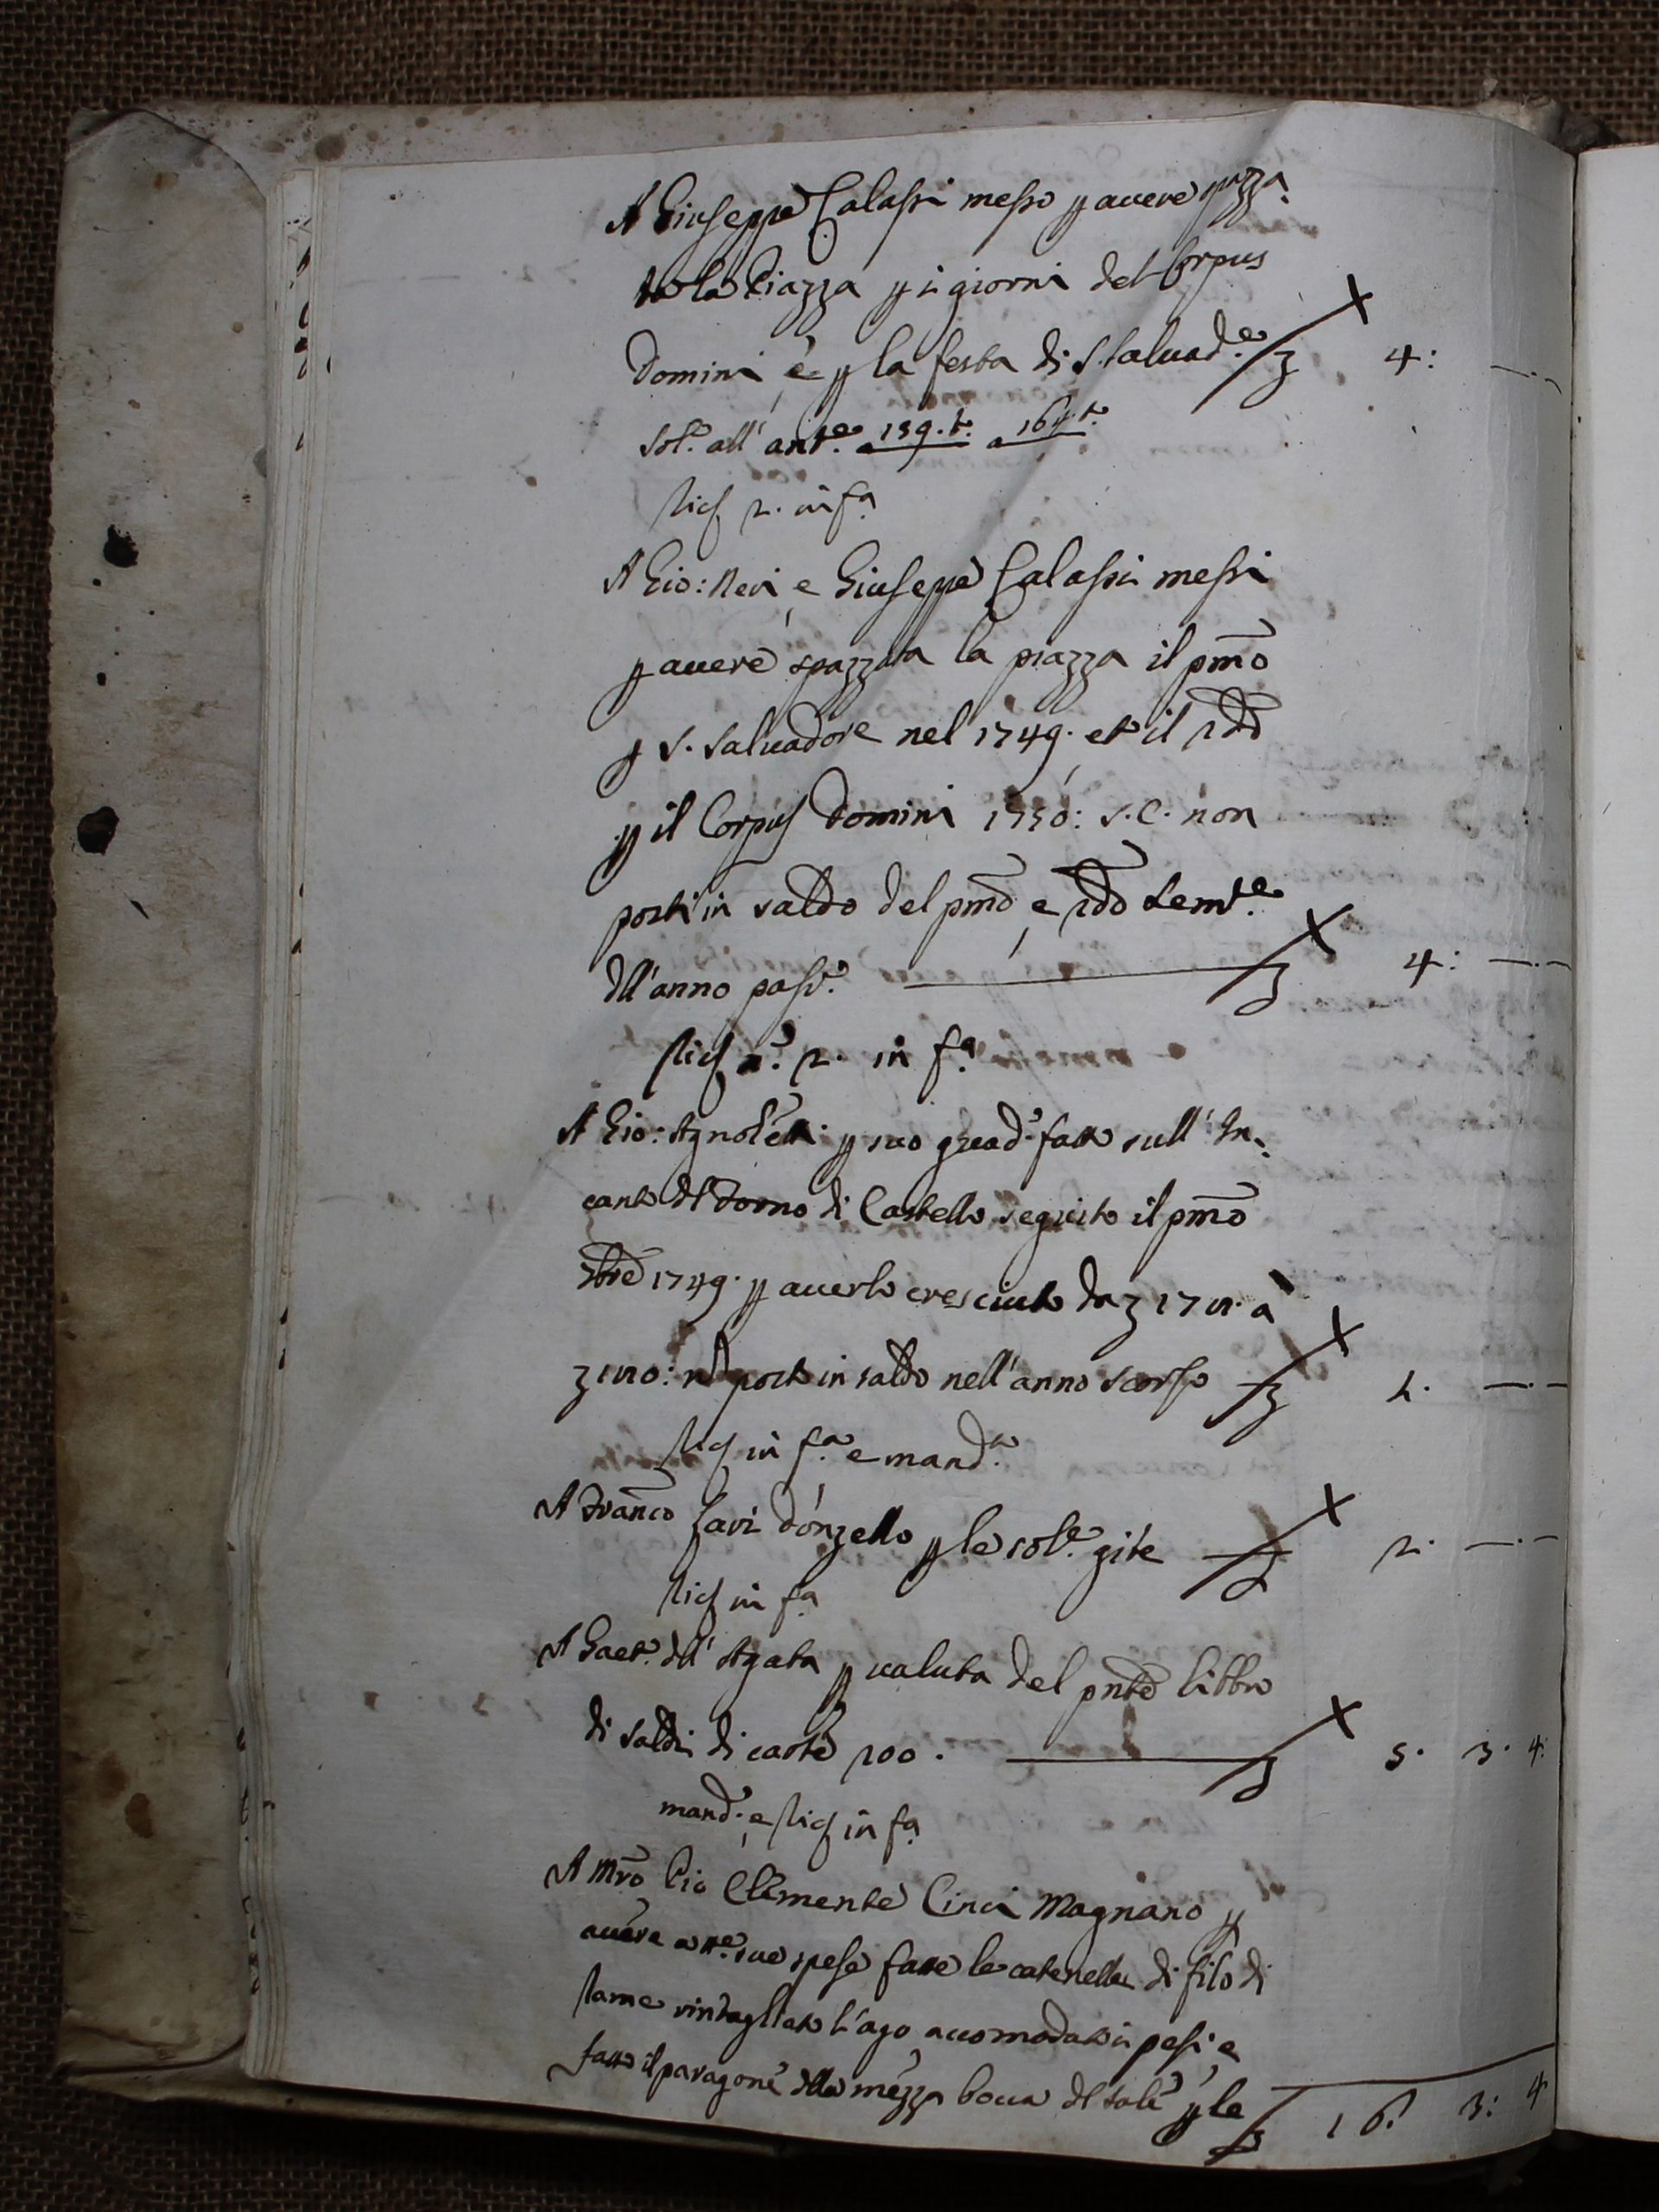 A Giuseppe Calassi messo p avere spazza:
ta la Piazza p i giorni del Corpus
Domini, e p la festa di S. Salvad.e £ 4: —.—
Sol.e all' ant.e a 159. t. a 164. t.
p avere spazzata la piazza il pmo
A Gio: Neri, e Giuseppe Calassi messi
p S. Salvadore nel 1749. et il 2do
p il Corpus Domini 1750: S.C. non
posti in saldo del pmo, e 2do Semt.e
dll'anno pass.o £ 4: —.—
A Gio: Agnoletti p suo guad.o fatto sull' In:
canto dl Forno di Castello seguito il pmo
9bre 1749. p averlo cresciuto da £ 171. a
£ 180: nel posto in saldo nell'anno scorso £ 1. —.—
in f.a e mand.o
A Franco Savi donzello p le sol.e gite £ 2. —.—
in f.a
A Gaet.o dll' Agata p valuta del pnte libbro
di saldi di carte 200. £ 5. 3. 4:
mand.o, e in f.a
A Mro Pio Clemente Cinci Magnano p
avere a tt.e sue spese fatte le catenelle di filo di
rame rintagliato l'ago, accomodato i pesi, e
fatto il paragone della mezza bocca dl sale, p le
£ 16: 3: 4